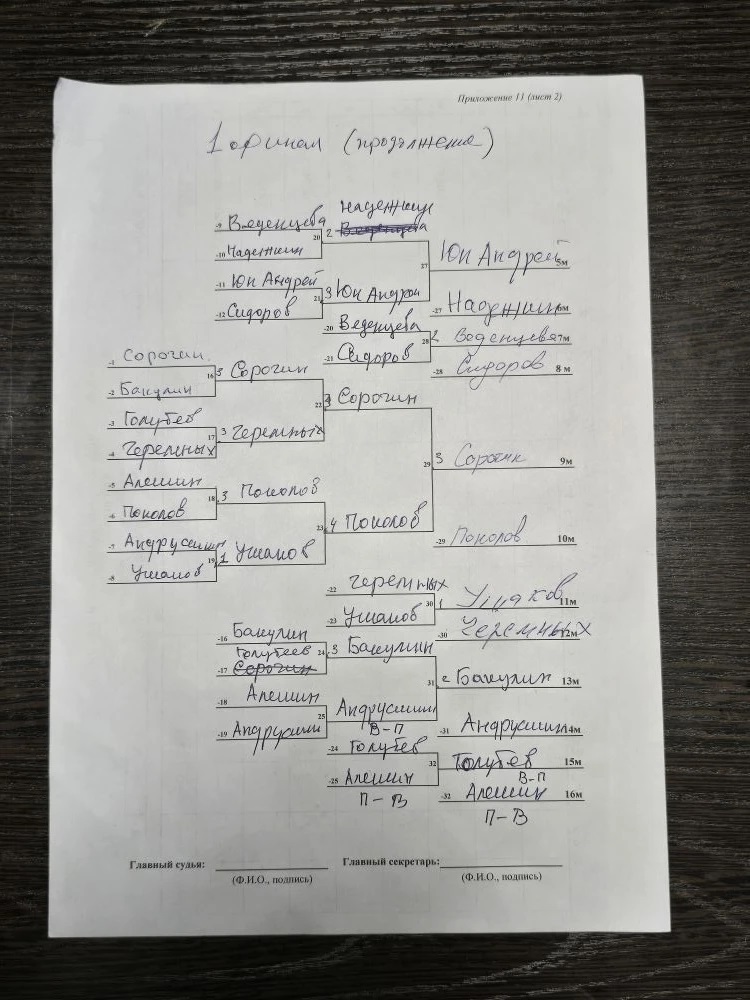 Приложение 11 (лист 2)
1 финал (продолжение)
-9 Веденцева
20 2 Надежкин
Веденцева
-10 Надежкин
27 Юн Андрей 5м
-11 Юн Андрей
21 3 Юн Андрей
-12 Сидоров
-27 Надежкин 6м
-20 Веденцева
28 2 Веденцева 7м
-21 Сидоров
-28 Сидоров 8м
-1 Сорочин
16 3 Сорочин
-2 Бакулин
22 3 Сорочин
-3 Голубев
17 3 Черемных
-4 Черемных
29 3 Сорочин 9м
-5 Алешин
18 3 Поколов
-6 Поколов
23 4 Поколов
-7 Андрусишин
19 1 Ушаков
-8 Ушаков
-29 Поколов 10м
-22 Черемных
30 1 Ушаков 11м
-23 Ушаков
-30 Черемных 12м
-16 Бакулин
24 3 Бакулин
Голубев
-17 Сорочин
31 2 Бакулин 13м
-18 Алешин
25 Андрусишин
В-П
-19 Андрусишин
-31 Андрусишин 14м
-24 Голубев
32 Голубев 15м
В-П
-25 Алешин
П-В
-32 Алешин 16м
П-В
Главный судья:
Главный секретарь:
(Ф.И.О., подпись)
(Ф.И.О., подпись)